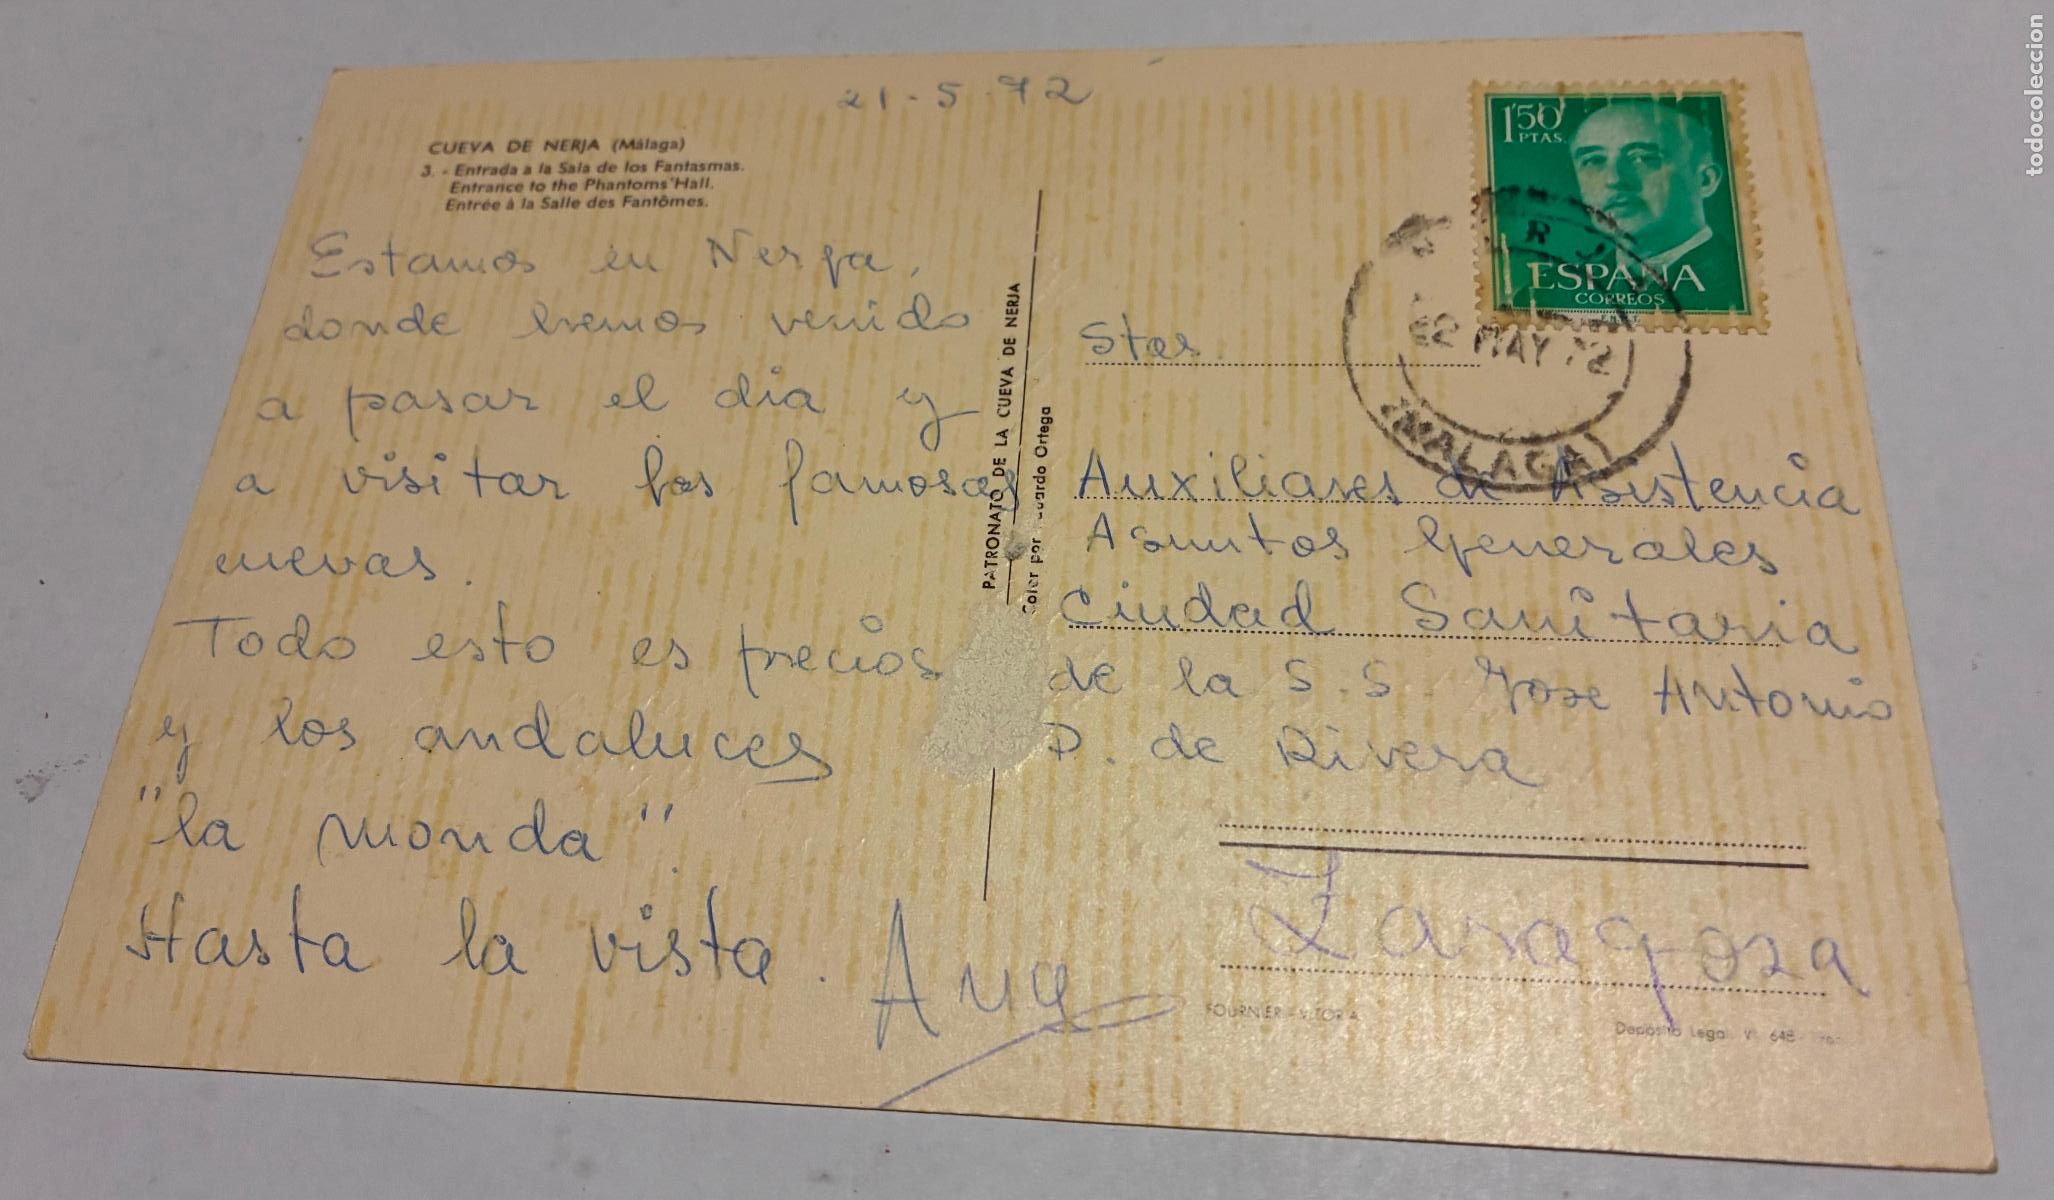 21-5-72
CUEVA DE NERJA (Málaga)
3. - Entrada a la Sala de los Fantasmas.
Entrance to the Phantoms'Hall.
Entrée à la Salle des Fantômes.
Estamos en Nerja,
donde hemos venido
a pasar el dia y
a visitar las famosas
cuevas.
Todo esto es precios
y los andaluces
"la monda".
Hasta la vista.
PATRONATO DE LA CUEVA DE NERJA
Color por Ortega
1'50
PTAS.
ESPAÑA
CORREOS
22 MAY 72
(MALAGA)
Stas.
Auxiliares de Asistencia
Asuntos Generales
Ciudad Sanitaria
de la S.S. Jose Antonio
P. de Rivera
Zaragoza
FOURNIER - VITORIA
Depósito Legal VI 648
todocoleccion